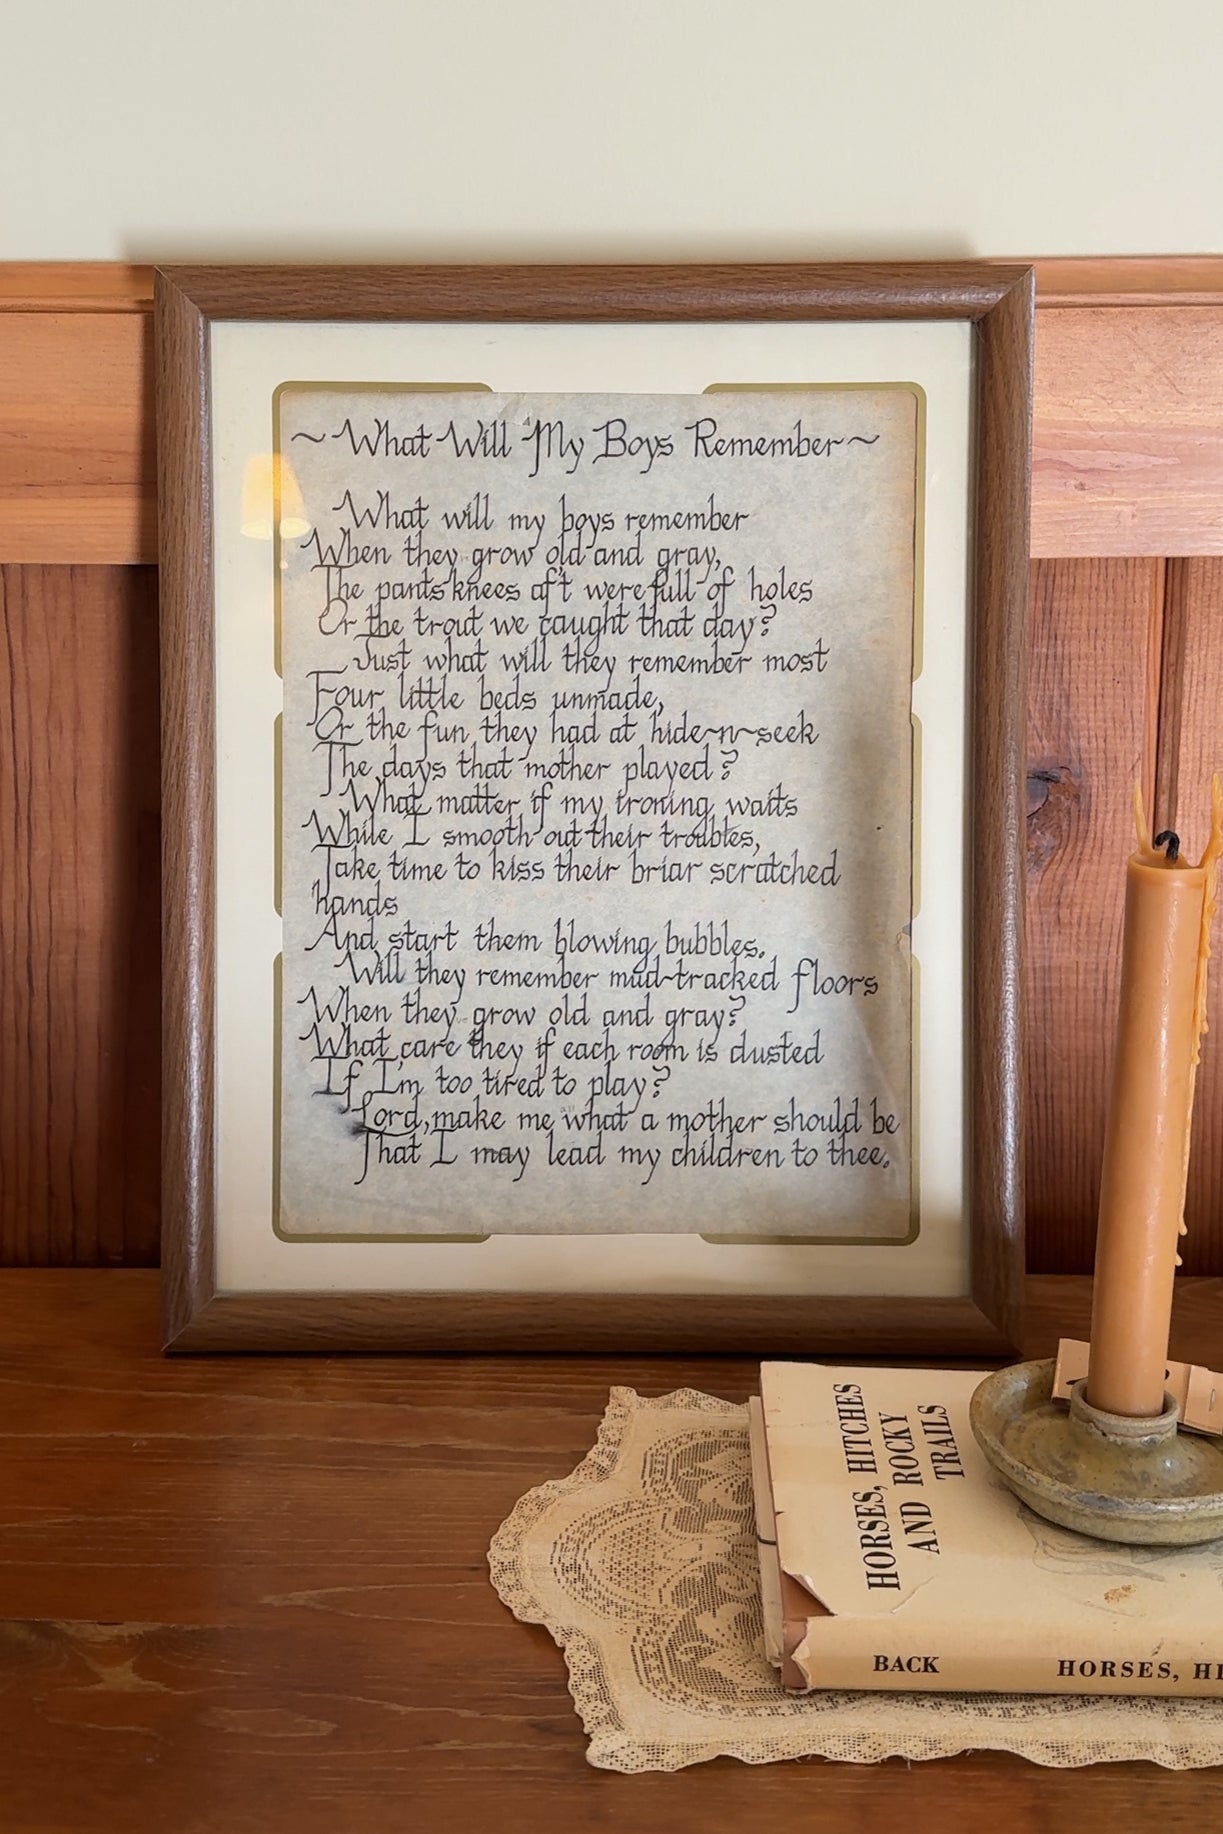 ~ What Will My Boys Remember ~
What will my boys remember
When they grow old and gray,
The pants knees oft were full of holes
Or the trout we caught that day?
Just what will they remember most
Four little beds unmade,
Or the fun they had at hide-n-seek
The days that mother played?
What matter if my ironing waits
While I smooth out their troubles,
Take time to kiss their briar scratched
hands
And start them blowing bubbles.
Will they remember mud-tracked floors
When they grow old and gray?
What care they if each room is dusted
If I'm too tired to play?
Lord, make me what a mother should be
That I may lead my children to thee.
HORSES, HITCHES
AND ROCKY
TRAILS
BACK HORSES, HI